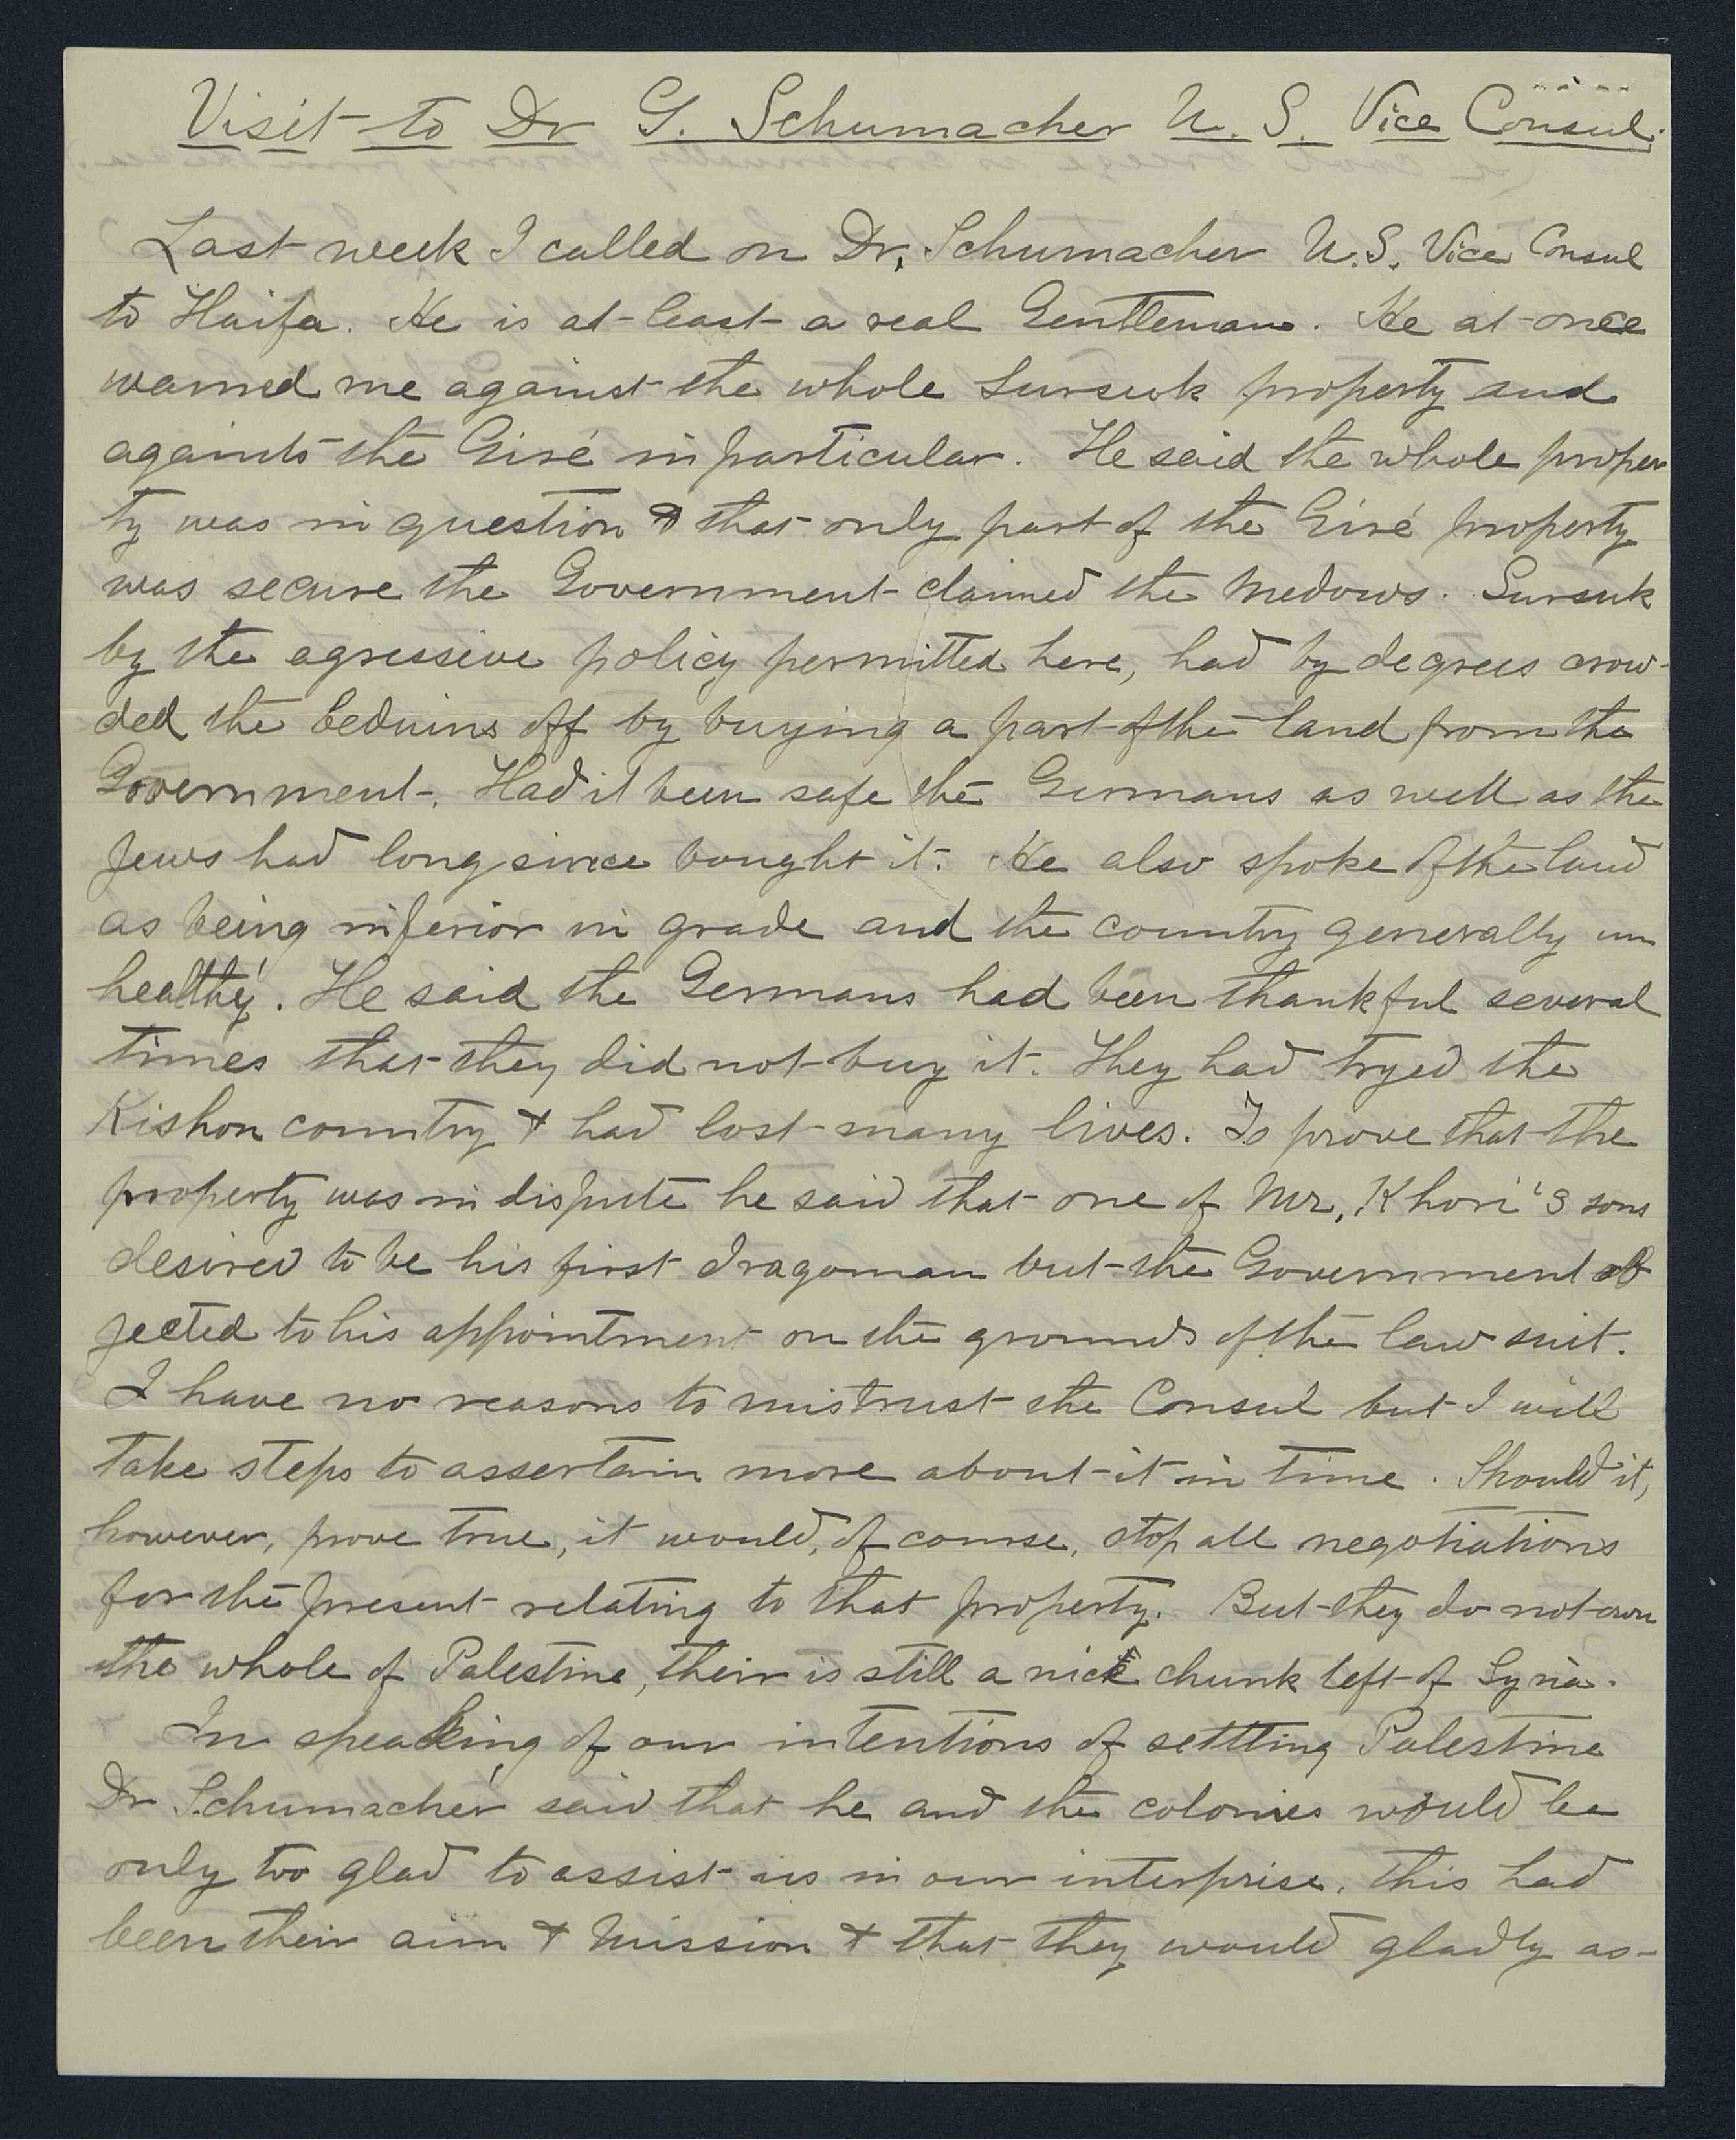 Visit to Dr G. Schumacher U. S. Vice Consul.
Last week I called on Dr. Schumacher U.S. Vice Consul
to Haifa. He is at least a real Gentleman. He at once
warned me against the whole Sursuk property and
againts the Giré in particular. He said the whole proper
ty was in question & that only part of the Giré property
was secure the Government claimed the Medows. Sursuk
by the agressive policy permitted here, had by degrees crow-
ded the beduins off by buying a part of the land from the
Government. Had it been safe the Germans as well as the
Jews had long since bought it. He also spoke of the land
as being inferior in grade and the country generally un
healthy. He said the Germans had been thankful several
times that they did not buy it. They had tryed the
Kishon country & had lost many lives. To prove that the
property was in dispute he said that one of Mr. Khori's sons
desired to be his first dragoman but the Government ob
jected to his appointment on the grounds of the law suit.
I have no reasons to mistrust the Consul but I will
take steps to assertain more about it in time. Should it,
however, prove true, it would, of course, stop all negotiations
for the present relating to that property. But they do not own
the whole of Palestine, their is still a nice chunk left of Syria.
In speaking of our intentions of settling Palestine
Dr Schumacher said that he and the colonies would be
only too glad to assist us in our interprise, this had
been their aim & Mission & that they would gladly as-